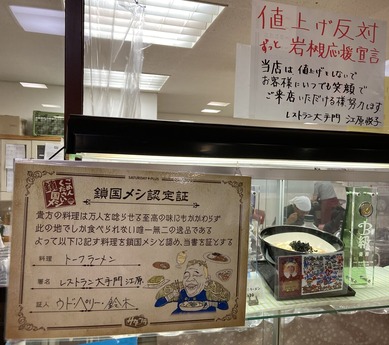 値上げ反対
ずっと岩槻応援宣言
当店は値上げをしないで
お客様にいつでも笑顔で
ご来店いただける様努力します
レストラン大手門 江原悦子
鎖国メシ認定証
貴方の料理は万人を唸らせる至高の味にもかかわらず
此の地でしか食べられない唯一無二の逸品である
よって以下に記す料理を鎖国メシと認め、当書を証とする
料理 トーフラーメン
署名 レストラン大手門 江原
証人 ウドちゃん 鈴木